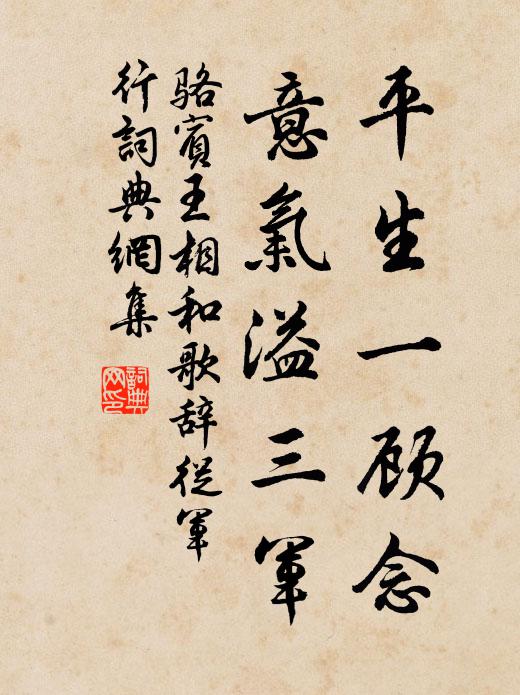 平生一顾念
意氣溢三軍
骆賓王相和歌辞從軍
行詞典網集
詞典
网印